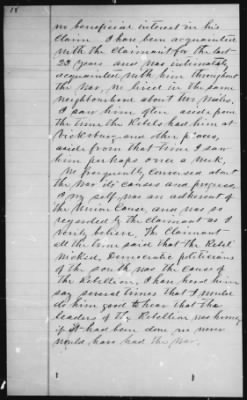 18
no beneficial interest in his
claim I have been acquainted
with the claimant for the last
22 years and was intimately
acquainted with him throughout
the war, we lived in the same
neighbourhood about two miles.
I saw him often aside from
the time the Rebels had him at
Vicksburg and other places,
aside from that time I saw
him perhaps once a week,
We frequently conversed about
the war its causes and progress.
I my self was an adherent of
the Union Cause, and was so
regarded by the claimant as I
verily believe, The Claimant
all the time said that the
wicked, Democratic politicians
of the south was the cause of
the Rebellion, I have heard him
say several times that it would
do him good to hear that the
leaders of the Rebellion was hung
if it had been done we never
would have had this war.